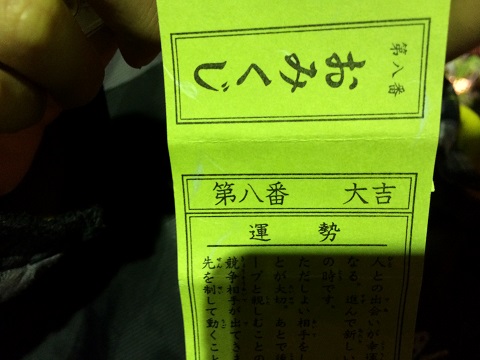 第八番
おみくじ
第八番　大吉
運勢
人との出会いが幸
なる。進んで新しい
の時です。
ただしよい相手を
とが大切。あとで後
ープと親しむことの
競争相手が出てき
先を制して動くこと